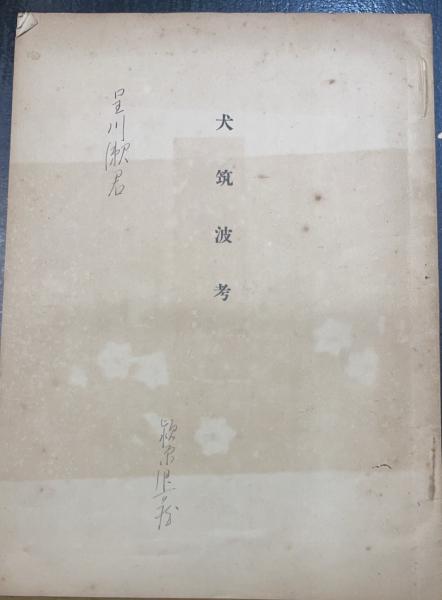 犬筑波考
呈川瀬君
潁原退蔵